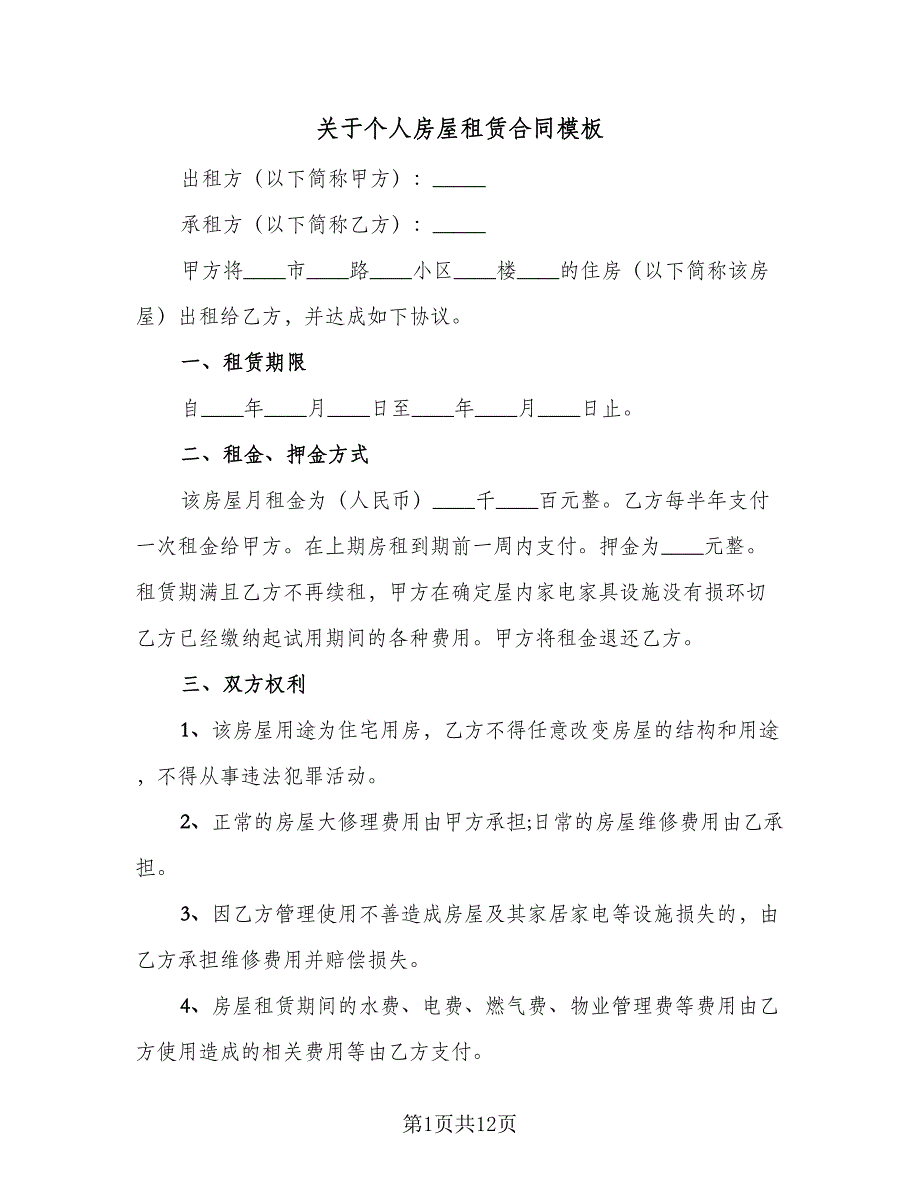 关于个人房屋租赁合同模板
出租方（以下简称甲方）：_____
承租方（以下简称乙方）：_____
甲方将____市____路____小区____楼____的住房（以下简称该房
屋）出租给乙方，并达成如下协议。
一、租赁期限
自____年____月____日至____年____月____日止。
二、租金、押金方式
该房屋月租金为（人民币）____千____百元整。乙方每半年支付
一次租金给甲方。在上期房租到期前一周内支付。押金为____元整。
租赁期满且乙方不再续租，甲方在确定屋内家电家具设施没有损环切
乙方已经缴纳起试用期间的各种费用。甲方将租金退还乙方。
三、双方权利
1、该房屋用途为住宅用房，乙方不得任意改变房屋的结构和用途
，不得从事违法犯罪活动。
2、正常的房屋大修理费用由甲方承担;日常的房屋维修费用由乙承
担。
3、因乙方管理使用不善造成房屋及其家居家电等设施损失的，由
乙方承担维修费用并赔偿损失。
4、房屋租赁期间的水费、电费、燃气费、物业管理费等费用由乙
方使用造成的相关费用等由乙方支付。
第1页共12页